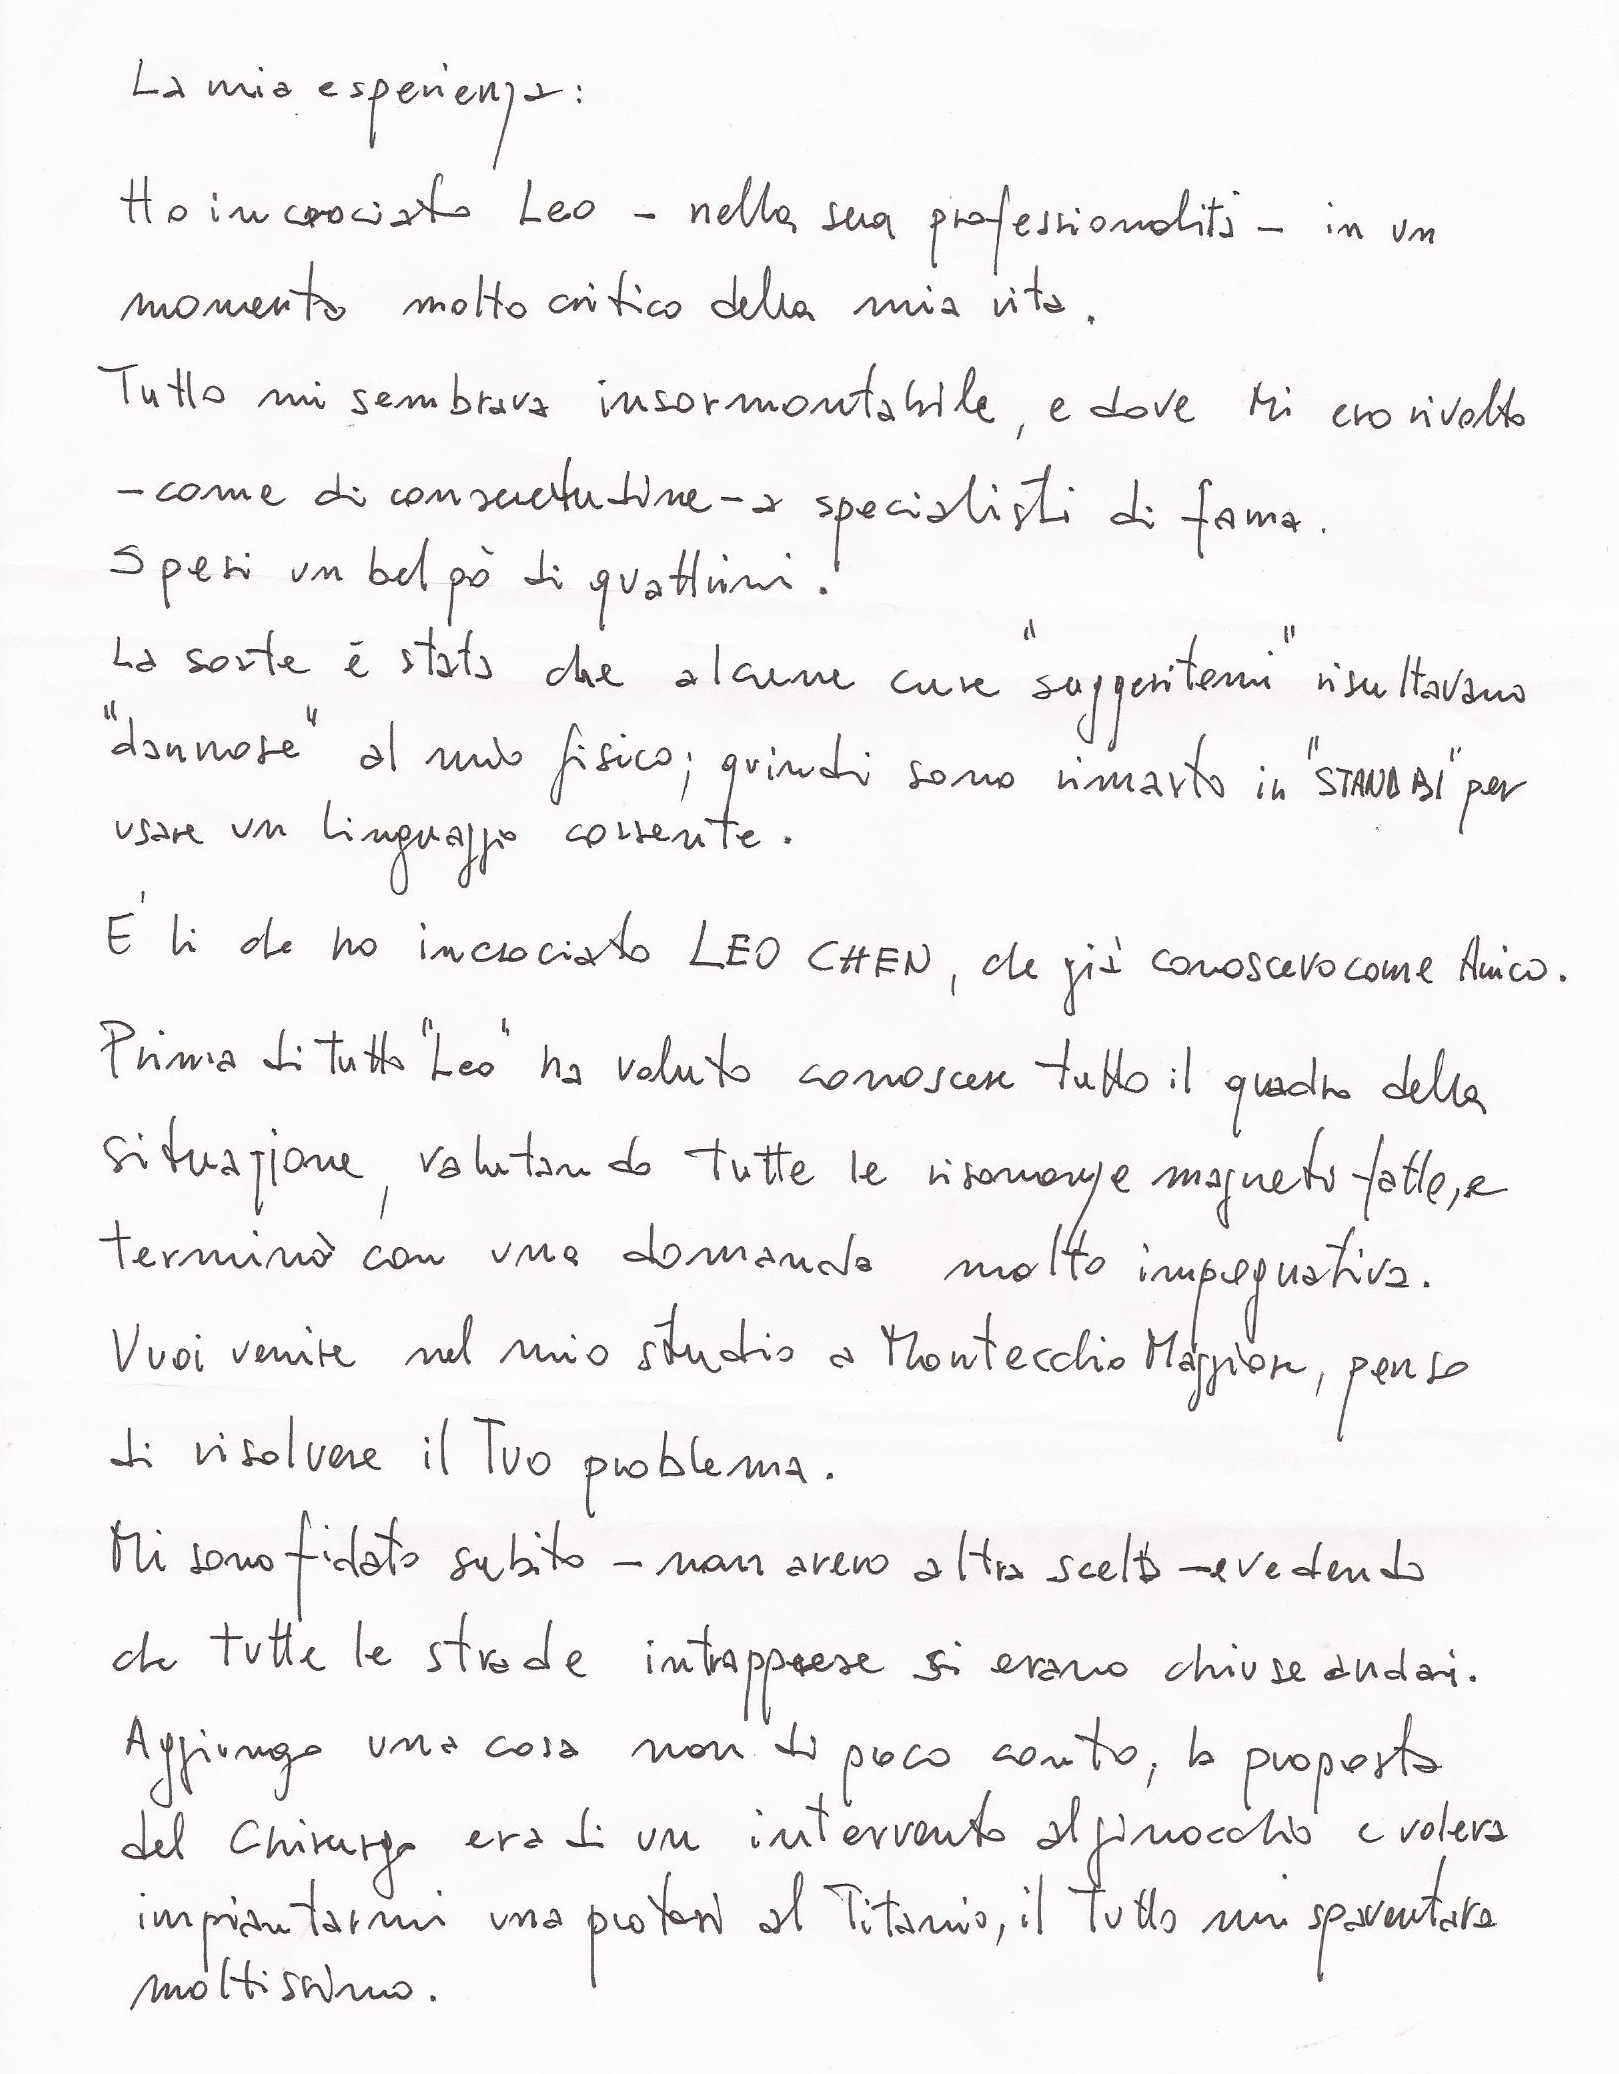 La mia esperienza:
Ho incrociato Leo - nella sua professionalità - in un
momento molto critico della mia vita.
Tutto mi sembrava insormontabile, e dove Mi ero rivolto
- come di consuetudine - a specialisti di fama.
Spesi un bel pò di quattrini.
La sorte è stata che alcune cure "suggeritemi" risultavano
"dannose" al mio fisico; quindi sono rimasto in "STANDBI" per
usare un linguaggio corrente.
E' li che ho incrociato LEO CHEN, che già conoscevo come Amico.
Prima di tutto "Leo" ha voluto conoscere tutto il quadro della
situazione, valutando tutte le risonanze magneti fatte, e
terminò con una domanda molto impegnativa.
Vuoi venire nel mio studio a Montecchio Maggiore, penso
di risolvere il Tuo problema.
Mi sono fidato subito - non avevo altra scelta - e vedendo
che tutte le strade intrapprese si erano chiuse andai.
Aggiungo una cosa non di poco conto, la proposta
del Chirurgo era di un intervento al ginocchio e voleva
impiantarmi una protesi al Titanio, il Tutto mi spaventava
moltissimo.